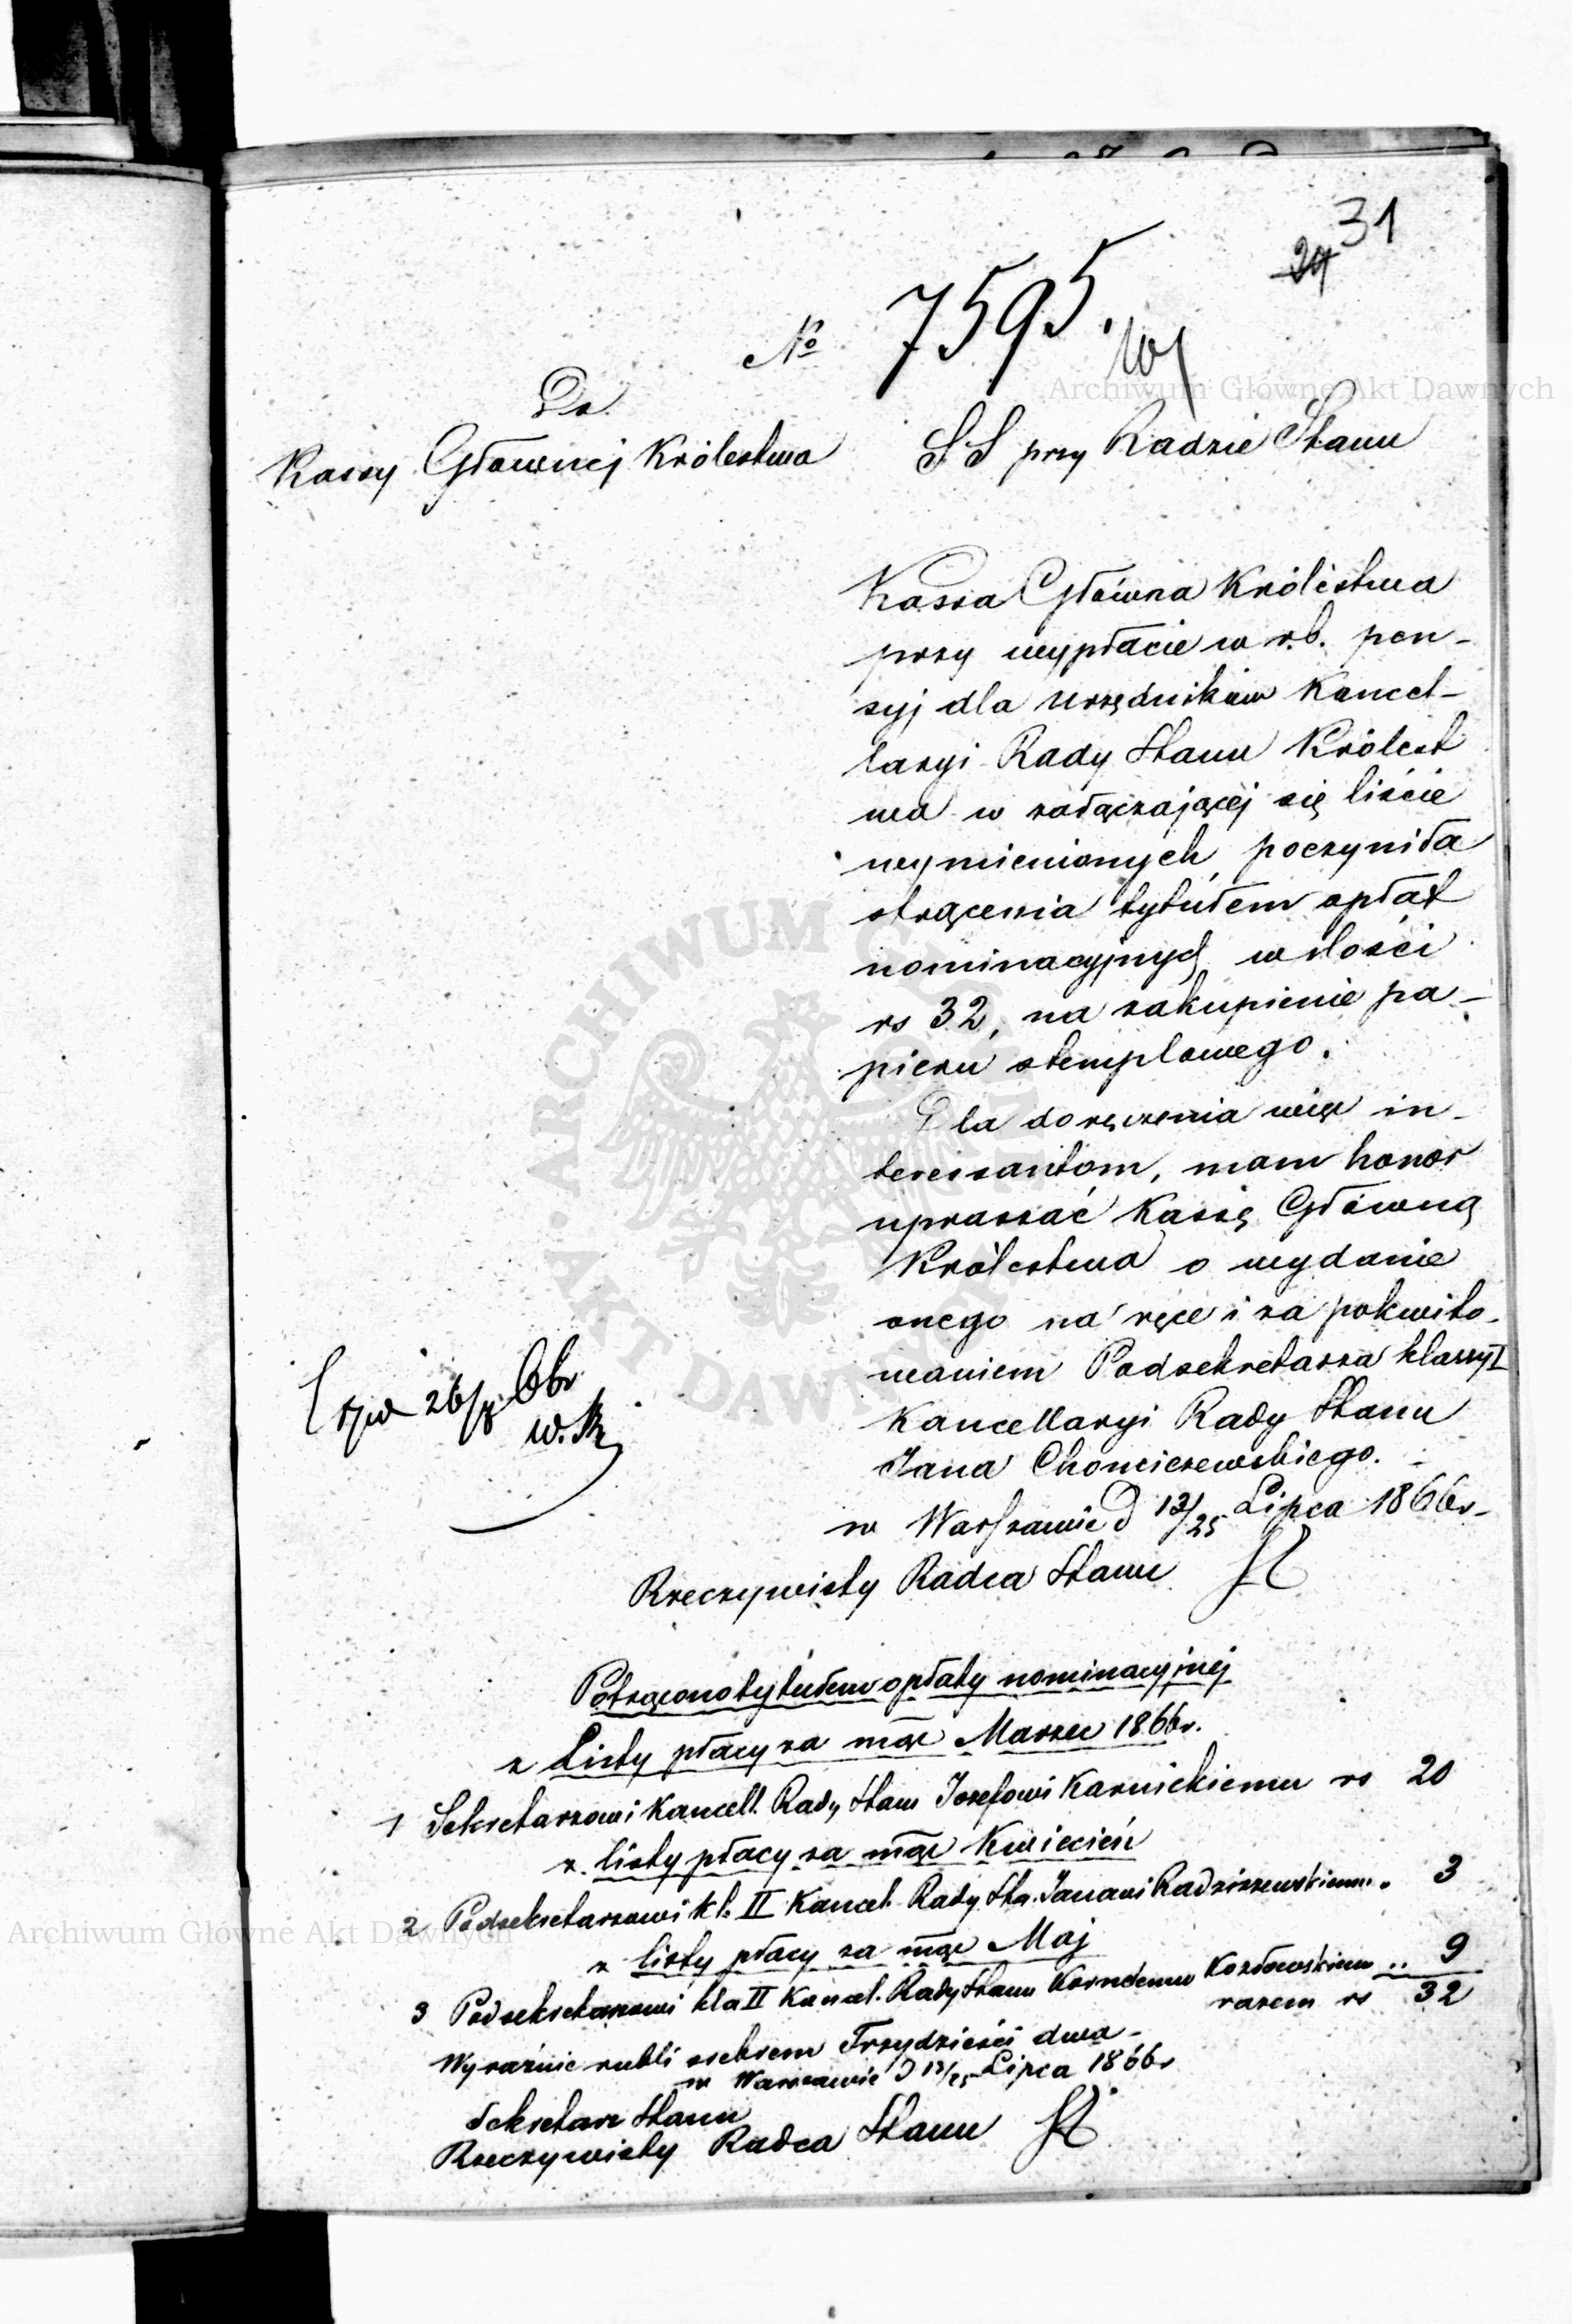 31
24
№ 7595.
Do
Kassy Głównej Królestwa
SS przy Radzie Stanu
Kassa Główna Królestwa
przy wypłacie w r.b. pen-
syj dla urzędników Kancel-
laryi Rady Stanu Królest
wa w załączającej się liście
wymienionych, poczyniła
strącenia tytułem opłat
nominacyjnych w ilości
rs 32, na zakupienie pa-
pieru stemplowego.
Dla doręczenia więc in-
teressantom, mam honor
upraszać Kassę Główną
Królestwa o wydanie
onego na ręce i za pokwito-
waniem Podsekretarza klassy I
Kancellaryi Rady Stanu
Jana Chomiczewskiego.
w Warszawie d 13/25 Lipca 1866 r.
Rzeczywisty Radca Stanu
26/7
Potrącono tytułem opłaty nominacyjnej
z Listy płacy za mąc Marzec 1866 r.
1 Sekretarzowi Kancell. Rady Stanu Józefowi Karnickiemu rs 20
z listy płacy za mąc Kwiecień
2 Podsekretarzowi kl. II Kancel. Rady Sta. Janowi Radziszewskiemu .. 3
z listy płacy za mąc Maj
3 Podsekretarzowi kla II Kancel. Rady Stanu Kozłowskiemu .. 9
razem rs 32
Wyraźnie rubli srebrem Trzydzieści dwa-
w Warszawie d 13/25 Lipca 1866 r
Sekretarz Stanu
Rzeczywisty Radca Stanu
Archiwum Główne Akt Dawnych
Archiwum Główne Akt Dawnych